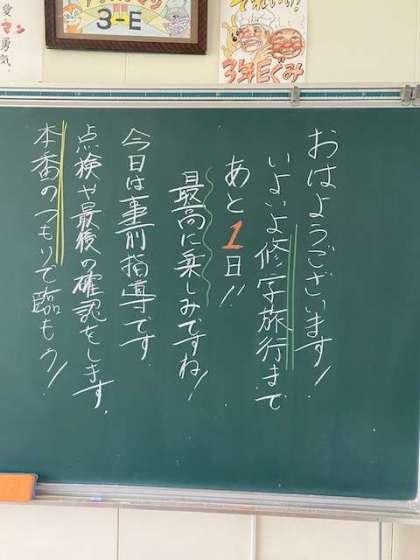 3-E
それいけ!
3年Eぐみ
おはようございます!
いよいよ修学旅行まで
あと1日!!
最高に楽しみですね!
今日は事前指導です
点検や最後の確認をします。
本番のつもりで臨もう!